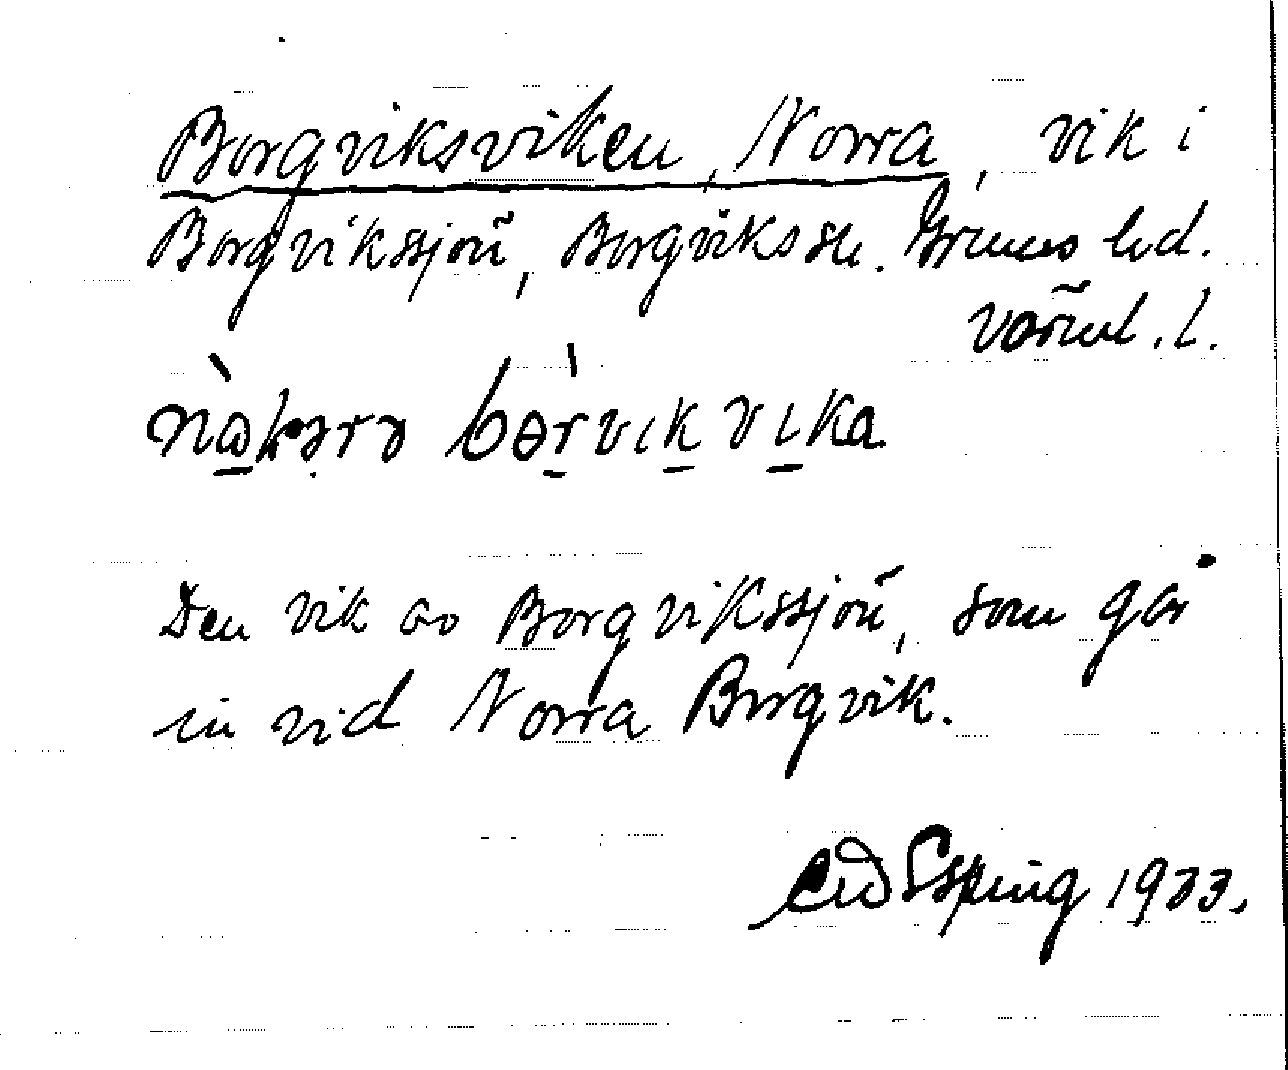 Borgviksviken, Norra, vik i
Borgvikssjön, Borgviks sn. Grums hd.
Värml. l.
Den vik av Borgvikssjön, som går
in vid Norra Borgvik.
Esping 1933.